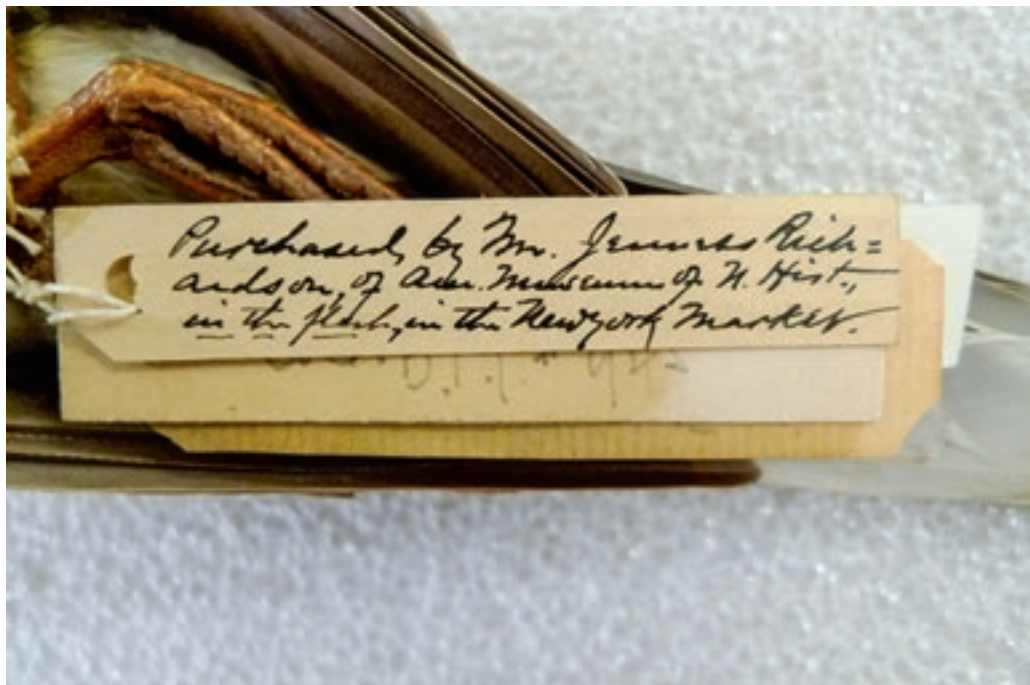 Purchased by Mr. Jenness Rich=
ardson, of Am. Museum of N. Hist.,
in the flesh, in the New York Market.